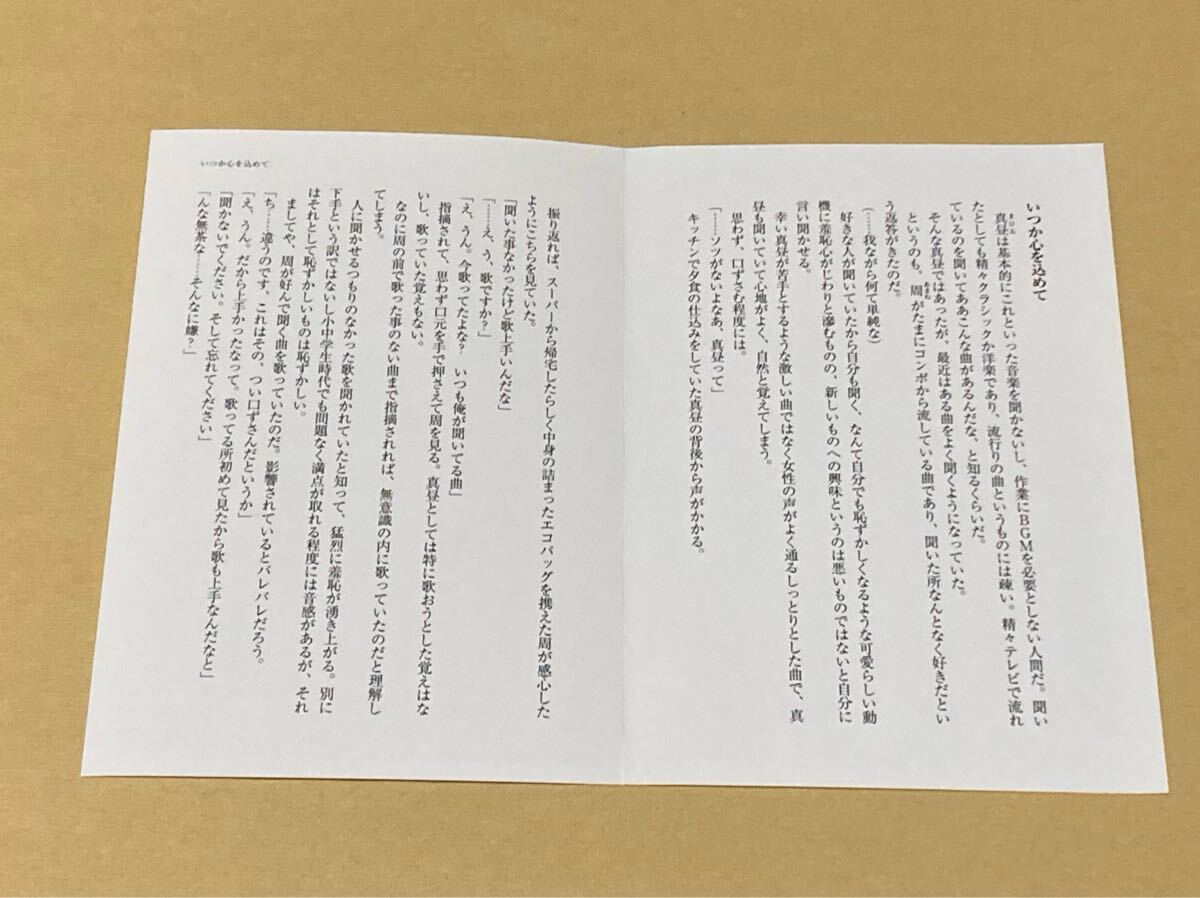 いつか心を込めて
真昼は基本的にこれといった音楽を聞かないし、作業にBGMを必要としない人間だ。聞い
たとしても精々クラシックか洋楽であり、流行りの曲というものには疎い。精々テレビで流れ
ているのを聞いてああこんな曲があるんだな、と知るくらいだ。
そんな真昼ではあったが、最近はある曲をよく聞くようになっていた。
というのも、周がたまにコンポから流している曲であり、聞いた所なんとなく好きだとい
う返答がきたのだ。
(……我ながら何て単純な)
好きな人が聞いていたから自分も聞く、なんて自分でも恥ずかしくなるような可愛らしい動
機に羞恥心がじわりと滲むものの、新しいものへの興味というのは悪いものではないと自分に
言い聞かせる。
幸い真昼が苦手とするような激しい曲ではなく女性の声がよく通るしっとりとした曲で、真
昼も聞いていて心地がよく、自然と覚えてしまう。
思わず、口ずさむ程度には。
「……ソツがないよなあ、真昼って」
キッチンで夕食の仕込みをしていた真昼の背後から声がかかる。
振り返れば、スーパーから帰宅したらしく中身の詰まったエコバッグを携えた周が感心した
ようにこちらを見ていた。
「聞いた事なかったけど歌上手いんだな」
「……え、う、歌ですか?」
「え、うん。今歌ってたよな? いつも俺が聞いてる曲」
指摘されて、思わず口元を手で押さえて周を見る。真昼としては特に歌おうとした覚えはな
いし、歌っていた覚えもない。
なのに周の前で歌った事のない曲まで指摘されれば、無意識の内に歌っていたのだと理解し
てしまう。
人に聞かせるつもりのなかった歌を聞かれていたと知って、猛烈に羞恥が湧き上がる。別に
下手という訳ではないし小中学生時代でも問題なく満点が取れる程度には音感があるが、それ
はそれとして恥ずかしいものは恥ずかしい。
ましてや、周が好んで聞く曲を歌っていたのだ。影響されているとバレバレだろう。
「ち……違うのです、これはその、つい口ずさんだというか」
「え、うん。だから上手かったなって。歌ってる所初めて見たから歌も上手なんだなと」
「聞かないでください。そして忘れてください」
「んな無茶な……そんなに嫌?」
いつか心を込めて